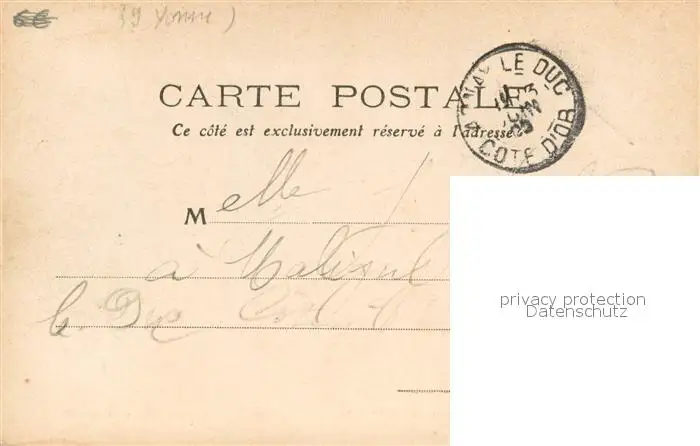 6€ (9 Yonne)
CARTE POSTALE
Ce côté est exclusivement réservé à l'adresse
NAY LE DUC
JUIN
COTE D'OR
Melle
à
le Duc
privacy protection
Datenschutz